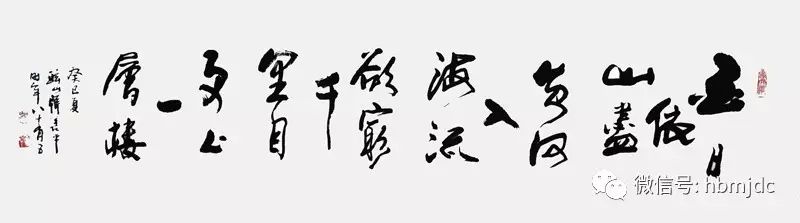 白日
依
山盡
黄河
入
海流
欲窮
千
里目
更上
一
層樓
癸巳夏
山
时年八十有五
微信号: hbmjdc